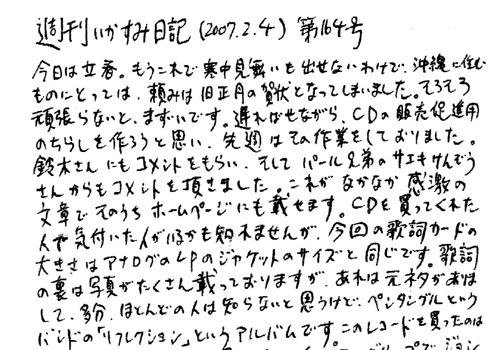 週刊いかすみ日記 (2007.2.4) 第164号
今日は立春。もうこれで寒中見舞いも出せないわけで、沖縄に住む
ものにとっては、頼みは旧正月の賀状となってしまいました。そろそろ
頑張らないと、まずいです。遅ればせながら、CDの販売促進用
のちらしを作ろうと思い、先週はその作業をしておりました。
鈴木さんにもコメントをもらい、そしてパール兄弟のサエキけんぞう
さんからもコメントを頂きました。これがなかなか感激の
文章で そのうち ホームページにも載せます。CDを買ってくれた
人で気付いた人がいるかも知れませんが、今回の歌詞カードの
大きさはアナログのLPのジャケットのサイズと同じです。歌詞
の裏は写真がたくさん載っておりますが、あれは元ネタがありま
して、多分、ほとんどの人は知らないと思うけど、ペンタングルという
バンドの「リフレクション」というアルバムです。このレコードを買ったのは